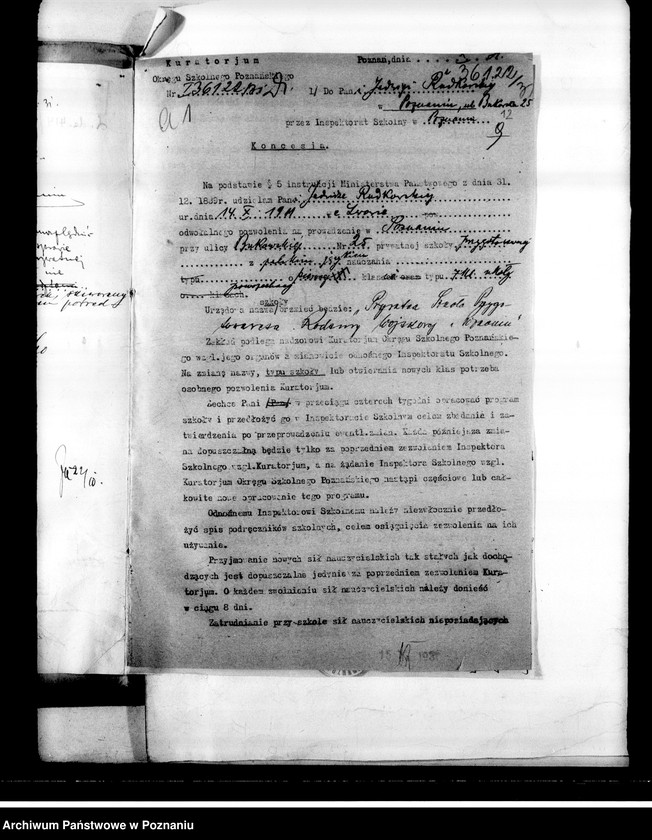 Kuratorjum
Okręgu Szkolnego Poznańskiego
Poznań, dnia
Nr. I 36122
1/ Do Pani Jadwigi Radkorskiej
w Poznaniu, ul. Bukowska 25
przez Inspektorat Szkolny w Poznaniu
Koncesja.
Na podstawie § 5 instrukcji Ministerstwa Państwowego z dnia 31.
12. 1839r. udzielam Pani Jadwidze Radkorskiej
ur. dnia 14. X. 1911
odwołalnego pozwolenia na prowadzenie w Poznaniu
przy ulicy Bukowskiej Nr. 25. prywatnej szkoły
z polskim językiem nauczania
typu klas typu 7.kl. szkoły
powszechnej
szkoły
Urzędowa nazwa brzmieć będzie: "Prywatna Szkoła
Rodziny Wojskowej w Poznaniu"
Zakład podlega nadzorowi Kuratorjum Okręgu Szkolnego Poznańskie-
go wzgl. jego organów a mianowicie odnośnego Inspektoratu Szkolnego.
Na zmianę nazwy, typu szkoły lub otwierania nowych klas potrzeba
osobnego pozwolenia Kuratorjum.
Zechce Pani /Pan/ w przeciągu czterech tygodni opracować program
szkoły i przedłożyć go w Inspektoracie Szkolnym celem zbadania i za-
twierdzenia po przeprowadzeniu ewentl. zmian. Każda późniejsza zmia-
na dopuszczalną będzie tylko za poprzedniem zezwoleniem Inspektora
Szkolnego wzgl. Kuratorjum, a na żądanie Inspektora Szkolnego wzgl.
Kuratorjum Okręgu Szkolnego Poznańskiego nastąpi częściowe lub cał-
kowite nowe opracowanie tego programu.
Odnośnemu Inspektorowi Szkolnemu należy niezwłocznie przedło-
żyć spis podręczników szkolnych, celem osiągnięcia zezwolenia na ich
używanie.
Przyjmowanie nowych sił nauczycielskich tak stałych jak docho-
dzących jest dopuszczalne jedynie za poprzedniem zezwoleniem Kura-
torjum. O każdem zwolnieniu sił nauczycielskich należy donieść
w ciągu 8 dni.
Zatrudnianie przy szkole sił nauczycielskich nieposiadających
Archiwum Państwowe w Poznaniu